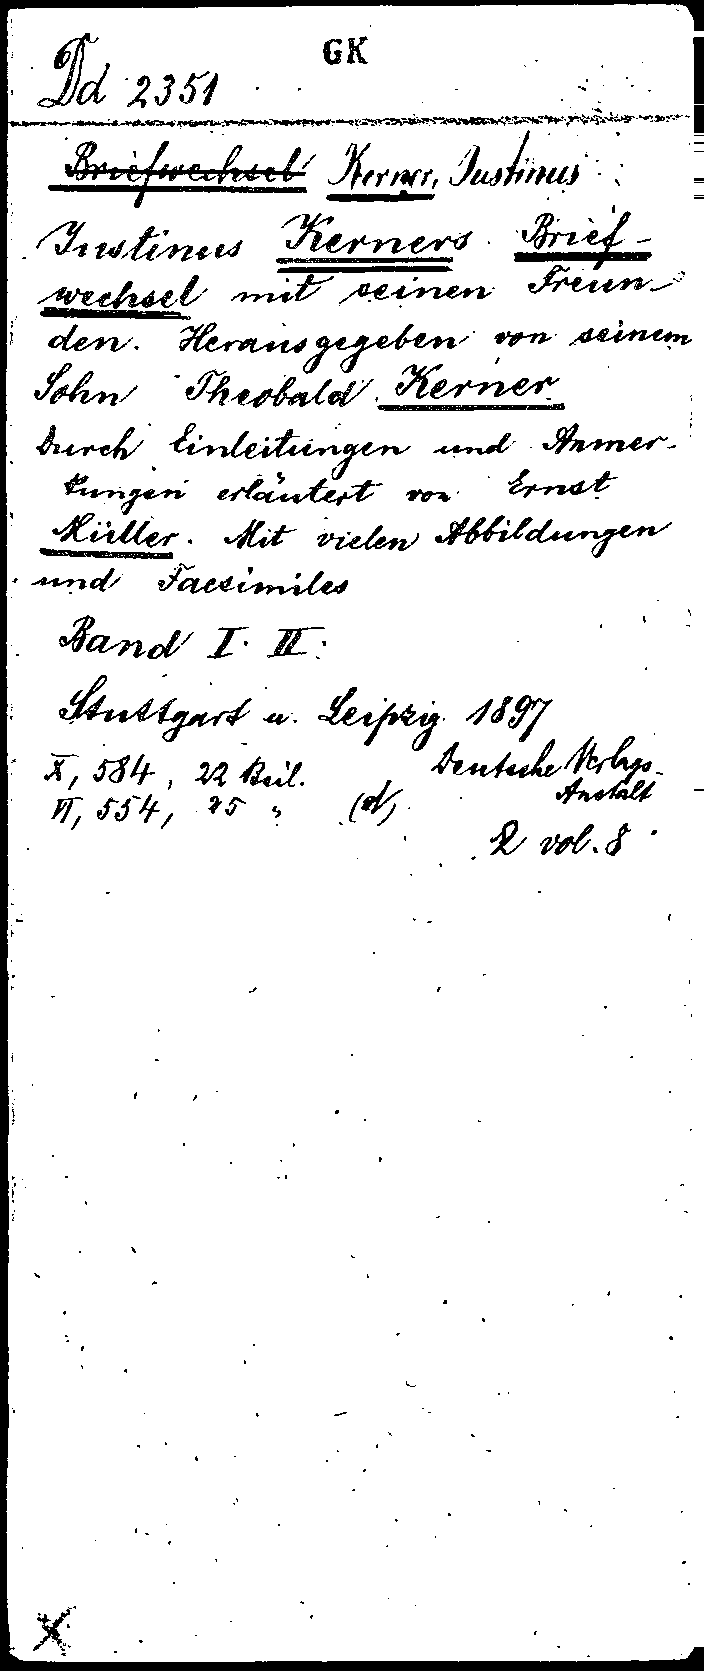 GK
Dd 2351
Briefwechsel Kerner, Justinus
Justinus Kerners Brief-
wechsel mit seinen Freun-
den. Herausgegeben von seinem
Sohn Theobald Kerner
Durch Einleitungen und Anmer-
kungen erläutert von Ernst
Müller. Mit vielen Abbildungen
und Facsimiles
Band I. II.
Stuttgart u. Leipzig 1897
Deutsche Verlags-
Anstalt
X, 584, 22 Beil.
VI, 554, 25 "
2 vol. 8
X